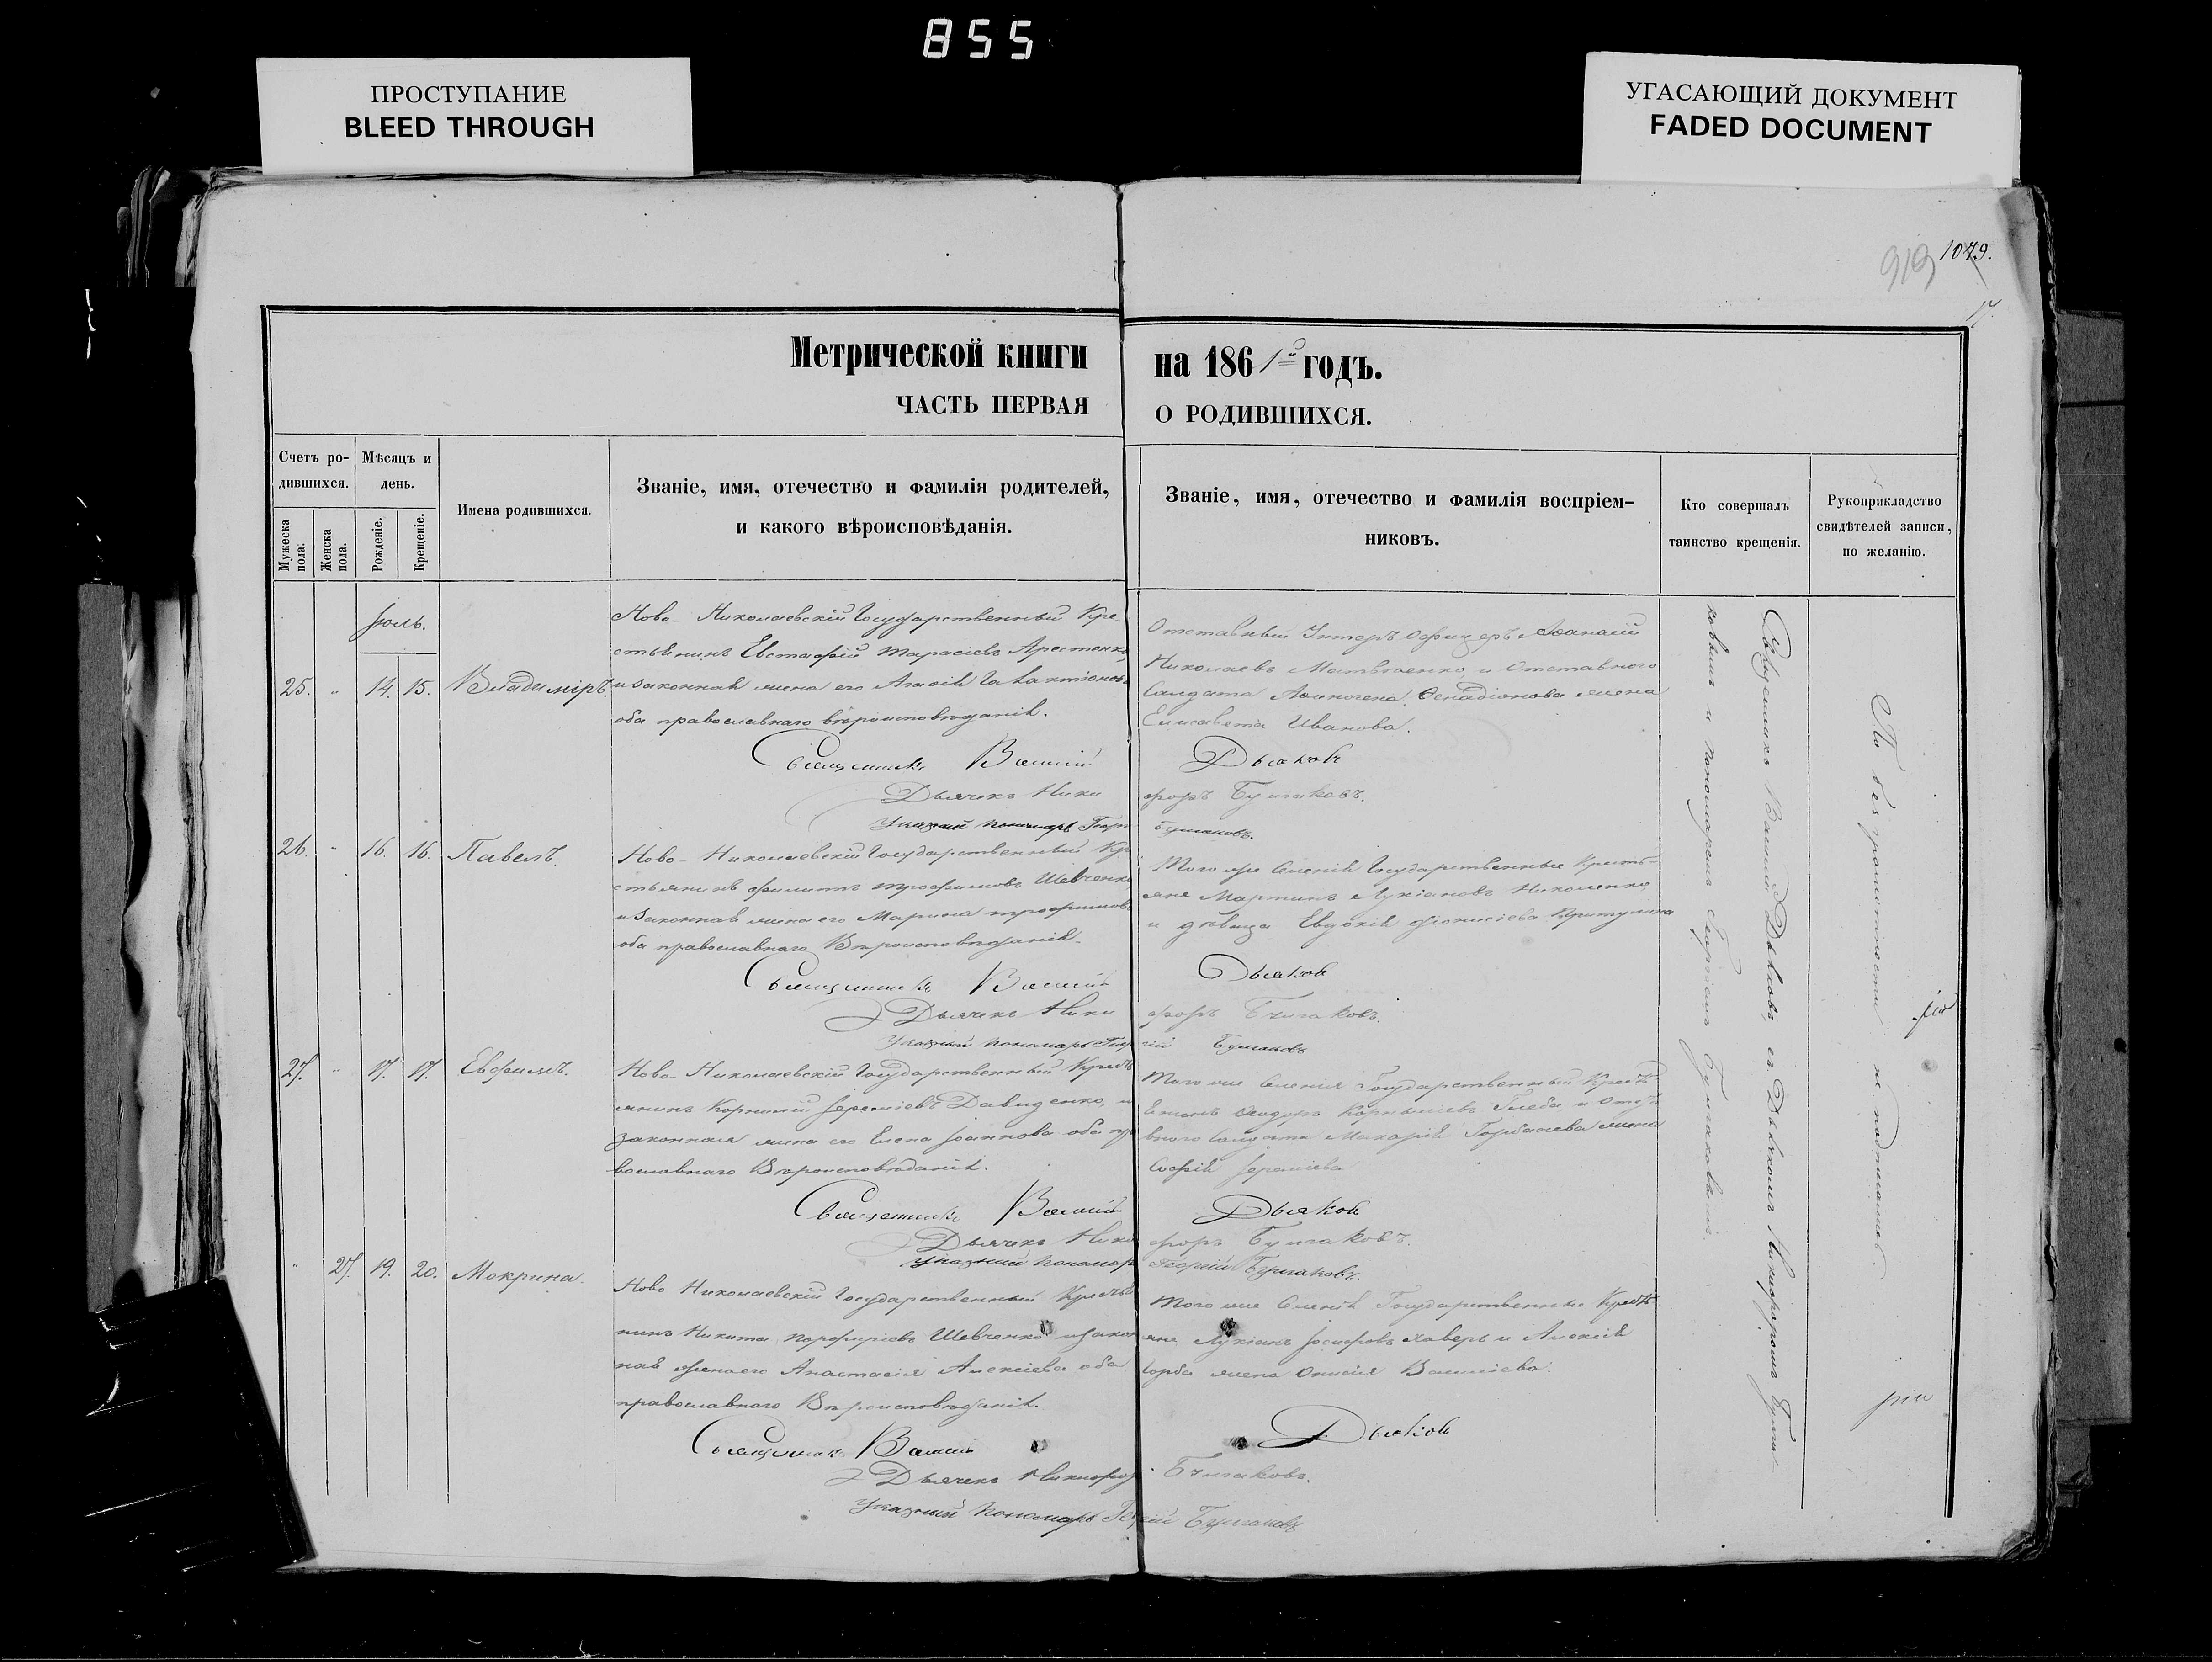 855
ПРОСТУПАНИЕ
BLEED THROUGH
УГАСАЮЩИЙ ДОКУМЕНТ
FADED DOCUMENT
919 1079.
Метрической книги на 1861 годъ.
ЧАСТЬ ПЕРВАЯ О РОДИВШИХСЯ.
Счетъ ро-
дившихся.
Мужеска
пола.
Женска
пола.
Мѣсяцъ и
день.
Рожденіе.
Крещеніе.
Имена родившихся.
Званіе, имя, отечество и фамилія родителей,
и какого вѣроисповѣданія.
Званіе, имя, отечество и фамилія воспріем-
никовъ.
Кто совершалъ
таинство крещенія.
Рукоприкладство
свидѣтелей записи,
по желанію.
Іюль.
25. " 14. 15. Владиміръ.
Ново-Николаевскій Государственный Кре-
стьянинъ Евстафій Тарасіевъ Арестенко,
и законная жена его Агафія
оба православнаго вѣроисповѣданія.
Отставный Унтеръ Офицеръ Аѳанасій
Николаевъ Матвѣенко, и Отставнаго
Солдата жена
Елисавета Иванова.
Священникъ Василій Дьяковъ
Дьячекъ Никифоръ Булгаковъ.
Указный пономарь Георгій Булгаковъ.
26. " 16. 16. Павелъ.
Ново-Николаевскій Государственный Кре
стьянинъ Филиппъ Трофимовъ Шевченко,
и законная жена его Марина Трофимова
оба православнаго Вѣроисповѣданія.
Того же Селенія Государственные Кресть-
яне Мартинъ Лукіановъ Николенко,
и дѣвица Евдокія Діонисіева
Священникъ Василій Дьяковъ
Дьячекъ Никифоръ Булгаковъ.
Указный пономарь Георгій Булгаковъ
27. " 17. 17. Евфимъ.
Ново-Николаевскій Государственный Кресть
янинъ Корнилій Іереміевъ Давиденко, и
законная жена его Елена Іоаннова оба пра
вославнаго Вѣроисповѣданія.
Того же Селенія Государственный Кресть
янинъ Ѳеодоръ Корниліевъ Глеба и Отста
внаго Солдата Макарія Горбанева жена
Софія Іереміева
Священникъ Василій Дьяковъ
Дьячекъ Никифоръ Булгаковъ.
Указный пономарь Георгій Булгаковъ.
" 27. 19. 20. Мокрина.
Ново Николаевскій Государственный Крестья
нинъ Никита Порфиріевъ Шевченко и закон
ная жена его Анастасія Алексіева оба
православнаго Вѣроисповѣданія.
Того же Селенія Государственные Кресть
яне Лукіанъ Іосифовъ и Алексія
жена Василіева.
Священникъ Василій Дьяковъ
Дьячекъ Никифоръ Булгаковъ.
Указный пономарь Георгій Булгаковъ
Священникъ Василій Дьяковъ, съ Дьячкомъ Никифоромъ Булга-
ковымъ и пономаремъ Георгіемъ Булгаковымъ.
По безграмотности не подписались.